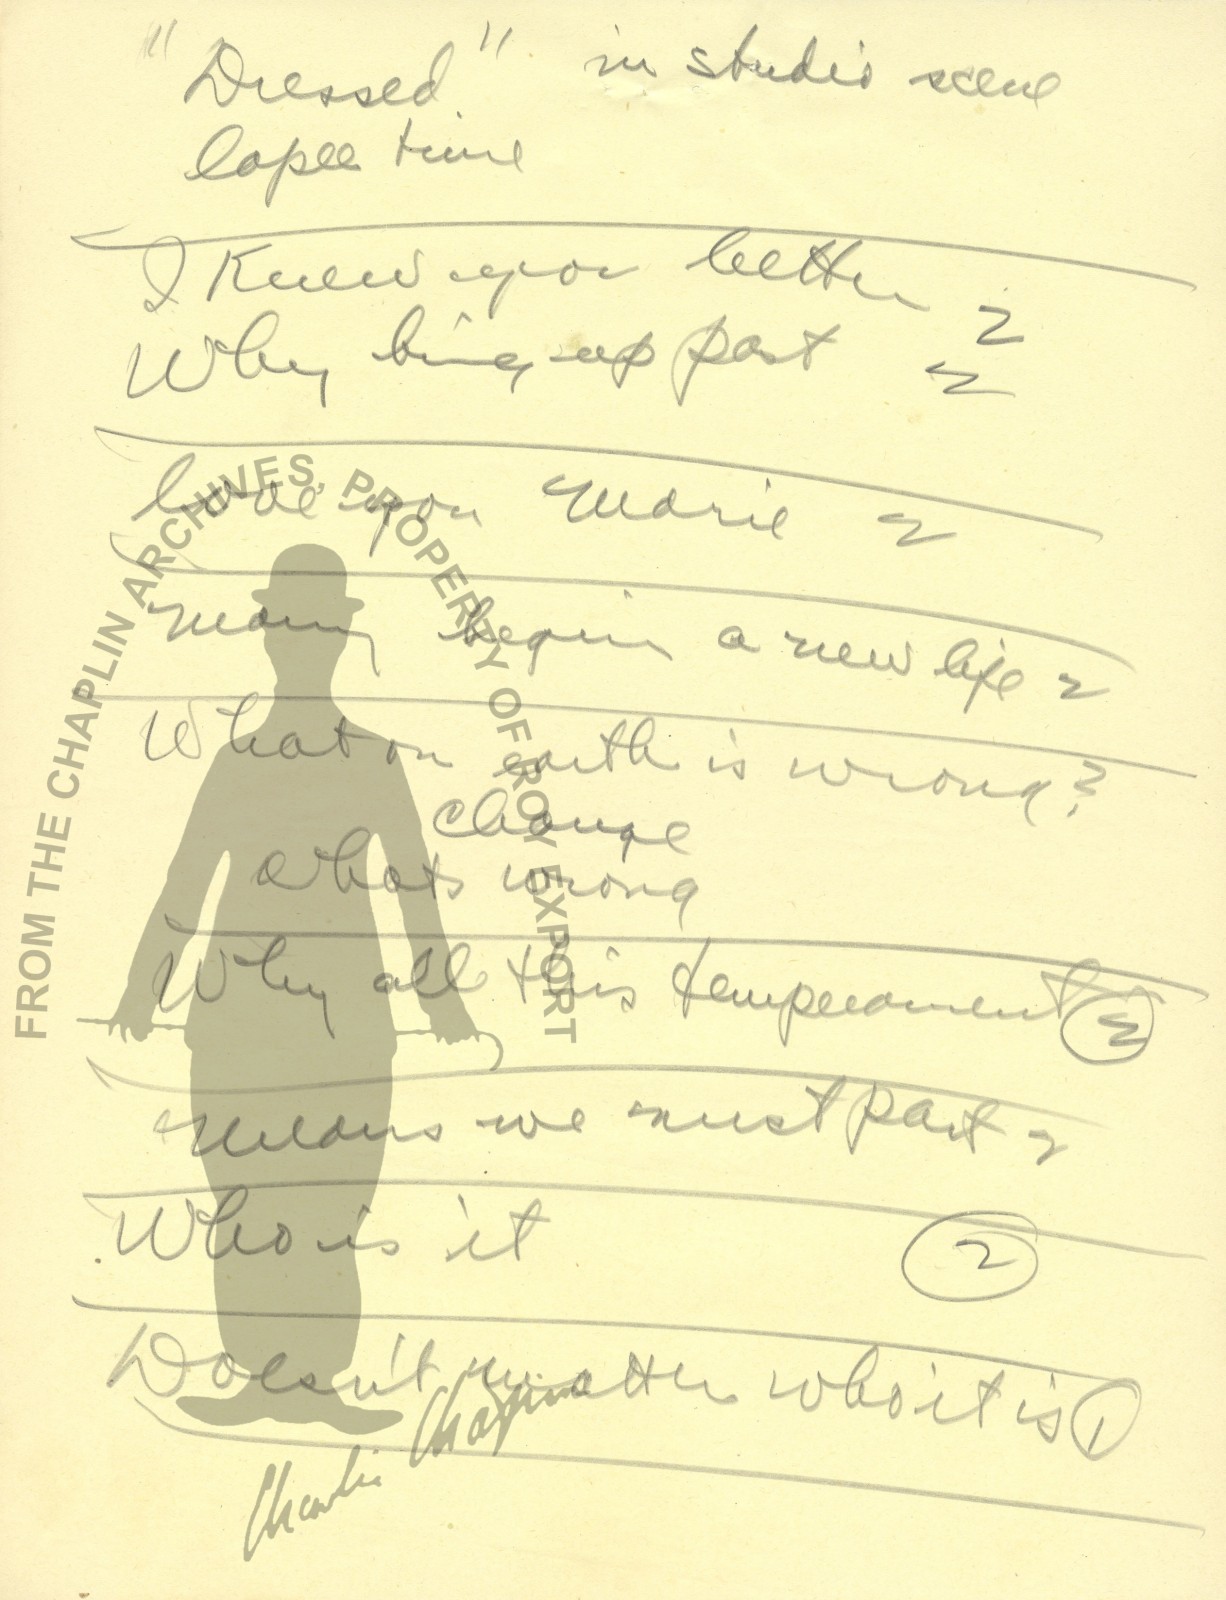 "Dressed" in studio scene
lapse time
I Knew you better 2
Why bring up past 2
love you Marie 2
Marry begin a new life 2
What on earth is wrong?
change
whats wrong
Why all this temperament 2
Means we must part 2
Who is it 2
Doesn't matter who it is 1
FROM THE CHAPLIN ARCHIVES, PROPERTY OF ROY EXPORT
Charlie Chaplin